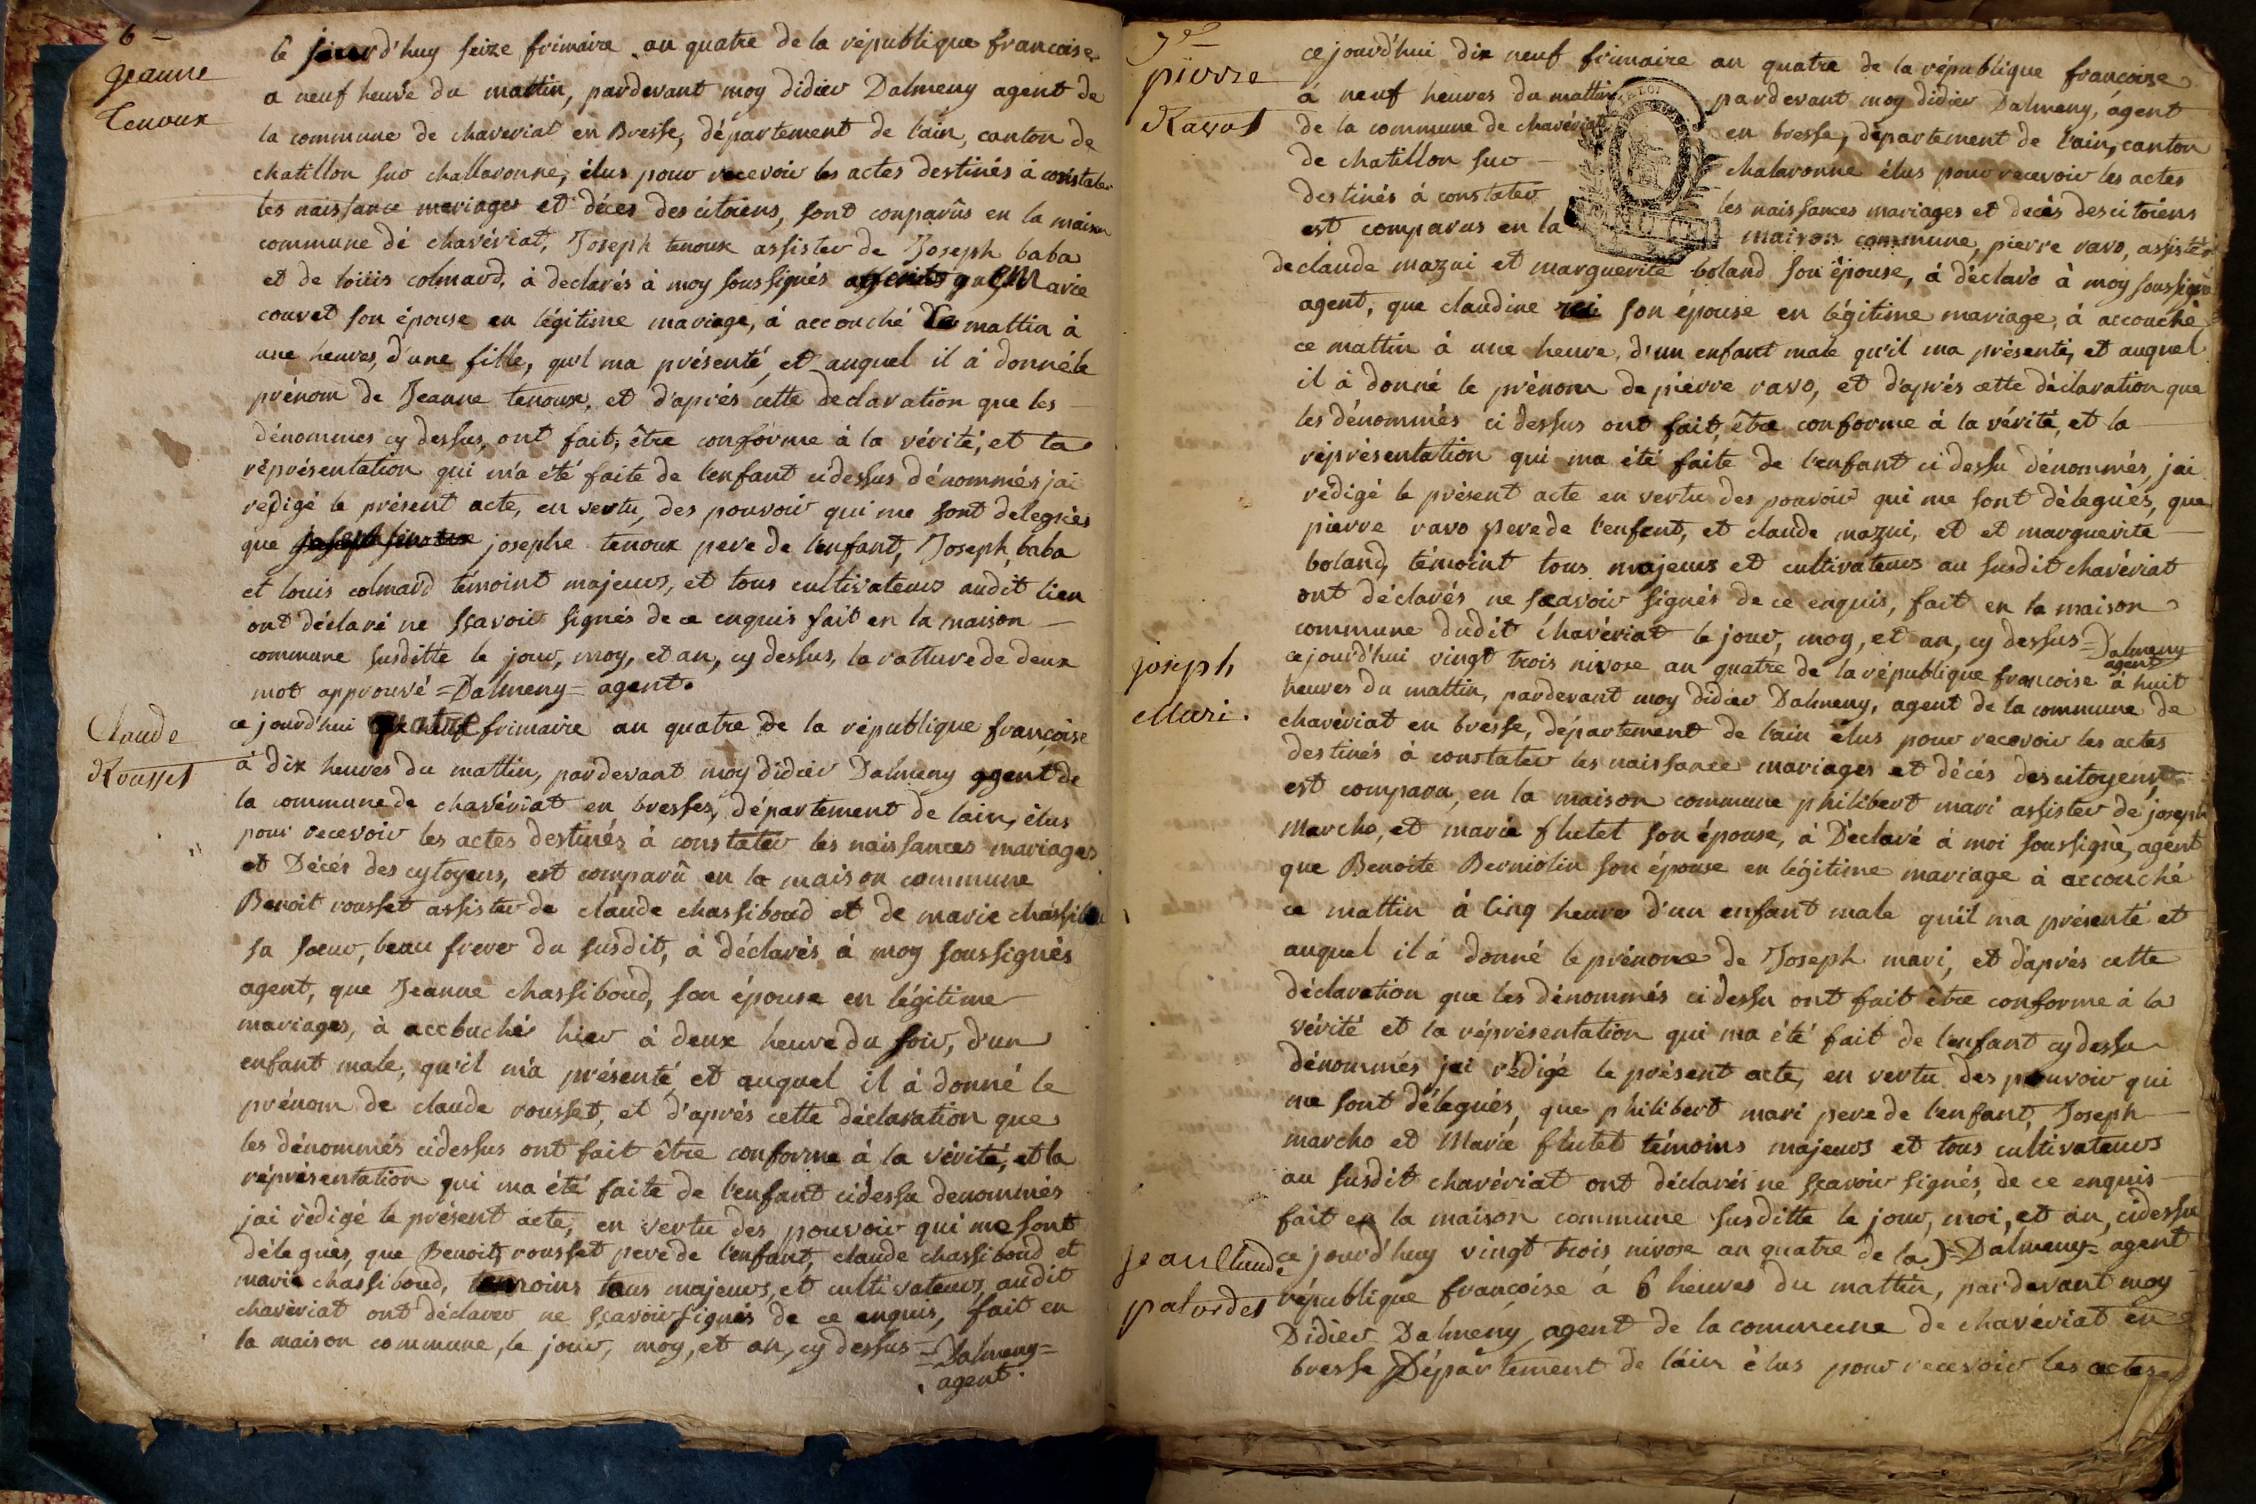 6
Jeanne
Tenoux
ce jourd'huy seize frimaire an quatre de la république francoise
a neuf heure du mattin, pardevant moy didier Dalmeny agent de
la commune de chaveriat en Bresse, département de l'ain, canton de
chatillon sur challaronne, élus pour recevoir les actes destinés à constater
les naissance mariages et décès des citoiens, sont conparûs en la maison
commune dé chavériat, Joseph tenoux assister de Joseph baba
et de loüis colmard, à declarés à moy soussignés que Marie
couvet son épouse en légitime mariage, à accouché Ce mattin à
une heures, d'une fille, qu'l ma présenté, et auquel il à donné le
prénom de Jeanne tenoux, et d'aprés cette declaration que les
dénommes cy dessus, ont fait, être conforme à la vérité, et la
réprésentation qui m'a été faite de l'enfant cidessus dénommés jai
redigé le présent acte, en vertu, des pouvoir qui me sont delegués
que josephe tenoux pere de l'enfant, Joseph baba
et louis colmard témoint majeurs, et tous cultivateurs audit lieu
ont déclaré ne sçavoir signés de ce enquis fait en la maison
commune susditte le jour, moy, et an, cy dessus, la ratture de deux
mot approuvé = Dalmeny = agent.
Claude
Rousset
ce jourd'hui quatre frimaire an quatre de la république françoise
à dix heures du mattin, pardevant moy didier Dalmeny agent de
la commune de chavériat en bresses, département de lain, élus
pour recevoir les actes destinés à constater les naissances mariages
et Décés des cytoyens, est comparû en la maison commune
Benoit rousset assister de claude chassiboud et de marie
sa sœur, beau frerer du susdit, à déclarés à moy soussignés
agent, que Jeanne chassiboud, son épouse en légitime
mariages, à accouché hier à deux heure du soir, d'un
enfant male, qu'il m'a présenté, et auquel il à donné le
prénom de claude rousset, et d'aprés cette déclaration que
les dénommés cidessus ont fait être conforme à la vérité, et la
réprésentation qui ma été faite de l'enfant cidessu denommés
jai rédigé le présent acte, en vertu des pouvoir qui me sont
délegués, que Benoit rousset pere de l'enfant, claude chassiboud et
marie chassiboud, temoins tous majeurs, et cultivateurs, audit
chavériat ont déclarer ne sçavoir signés de ce enquis, fait en
la maison commune, le jour, moy, et an, cy dessus = Dalmeny =
agent.
7e
pierre
Ravot
ce jourd'hui dix neuf frimaire an quatre de la république francoise
à neuf heures du mattin pardevant moy didier Dalmeny, agent
de la commune de chavériat en bresse, département de l'ain, canton
de chatillon sur chalaronne élus pour recevoir les actes
destinés à constater les naissances mariages et decès des citoiens
est comparus en la maison commune, pierre ravo, assister
de claude mazui et marguerite boland son épouse, à déclaré à moy soussigné
agent, que claudine rei son épouse en légitime mariage, à accouché
ce mattin à une heure, d'un enfant male qu'il ma présenté, et auquel
il à donné le prénom de pierre ravo, et d'aprés cette déclaration que
les dénommés ci dessus ont fait, être conforme à la vérité, et la
réprésentation qui ma été faite de l'enfant ci dessu dénommés, jai
rédigé le présent acte en vertu des pouvoir qui me sont délegués, que
pierre ravo pere de l'enfant, et claude mazui, et et marguerite
boland, témoint tous majeurs et cultivateurs au susdit chavériat
ont déclarés ne scavoir signés de ce enquis, fait en la maison
commune dudit chavériat le jour, moy, et an, cy dessus = Dalmeny
agent
joseph
Mari.
ce jourd'hui vingt trois nivose an quatre de la république francoise à huit
heures du mattin, pardevant moy Didier Dalmeny, agent de la commune de
chavériat en bresse, département de l'ain élus pour recevoir les actes
destinés à constater les naissance mariages et décés des citoyens,
est comparu, en la maison commune philibert mari assister de joseph
Marcho, et marie flutet son épouse, à Déclaré à moi soussigné, agent
que Benoite Berniolin son épouse en légitime mariage à accouché
ce mattin à Cinq heure d'un enfant male quil ma présenté et
auquel il à donné le prénom de Joseph mari, et d'aprés cette
déclaration que les dénommés ci dessu ont fait être conforme à la
vérité et la réprésentation qui ma été fait de l'enfant cy dessu
dénommés jai rédigé le présent acte, en vertu des pouvoir qui
me sont délegués, que philibert mari pere de l'enfant, Joseph
marcho et Marie flutet témoins majeurs et tous cultivateurs
au susdit chavériat ont déclarés ne sçavoir signés, de ce enquis
fait en la maison commune susditte le jour, moi, et an, cidessu
= Dalmeny = agent
jean Claude
palordet
ce jourd'huy vingt trois nivose an quatre de la
république françoise à 6 heures du mattin, pardevant moy
Didier Dalmeny, agent de la commune de chavériat en
bresse Département de l'ain élus pour recevoir les actes